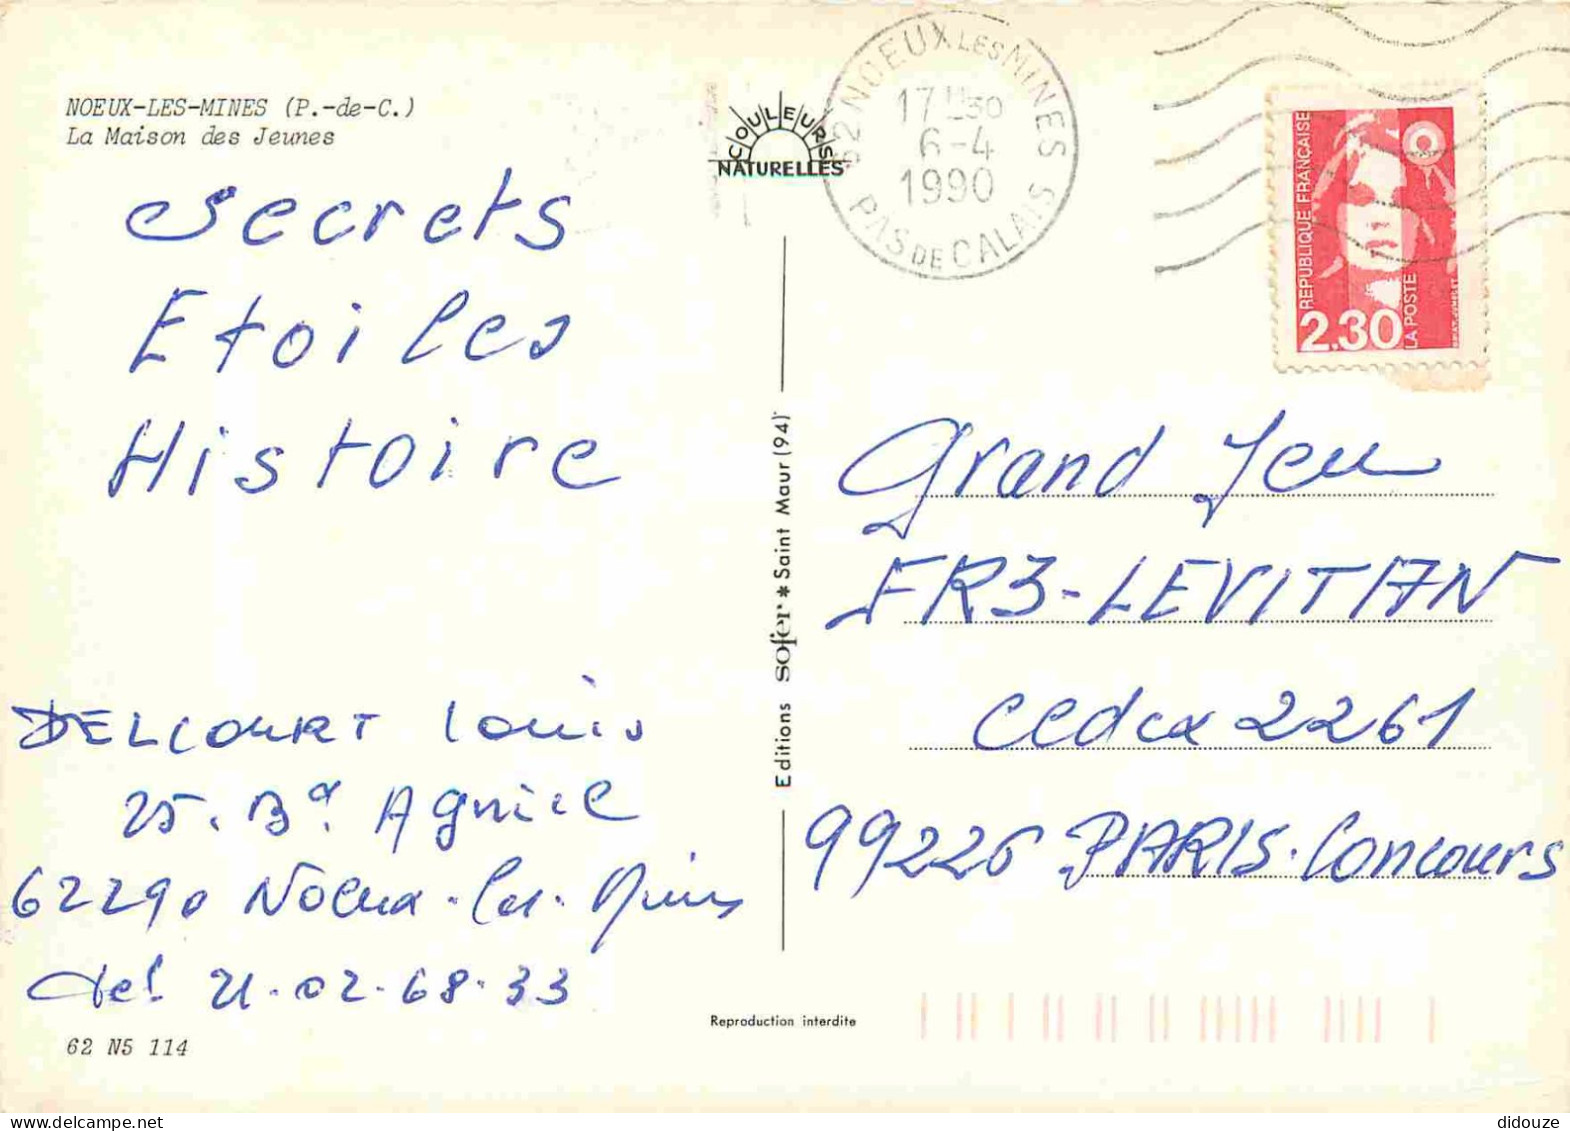 NOEUX-LES-MINES (P.-de-C.)
La Maison des Jeunes
COULEURS
NATURELLES
62 NOEUX LES MINES
17 H 30
6-4
1990
PAS DE CALAIS
REPUBLIQUE FRANÇAISE
LA POSTE
2.30
Secrets
Etoiles
Histoire
DELCOURT Louis
25. Bd.
62290 Noeux-les-Mines
tel 21.02.68.33
62 N5 114
Editions sofer * Saint Maur (94)
Reproduction interdite
Grand Jeu
FR3-LEVITAN
cedex 2261
99226 PARIS.Concours
didouze